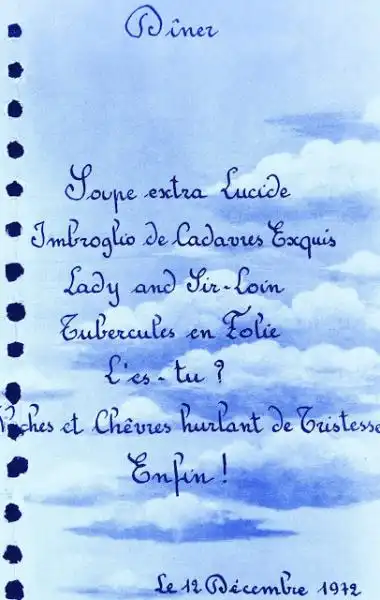 Dîner
Soupe extra Lucide
Imbroglio de Cadavres Exquis
Lady and Sir-Loin
Tubercules en Folie
L'es-tu ?
Vaches et Chèvres hurlant de Tristesse
Enfin !
Le 12 Décembre 1972